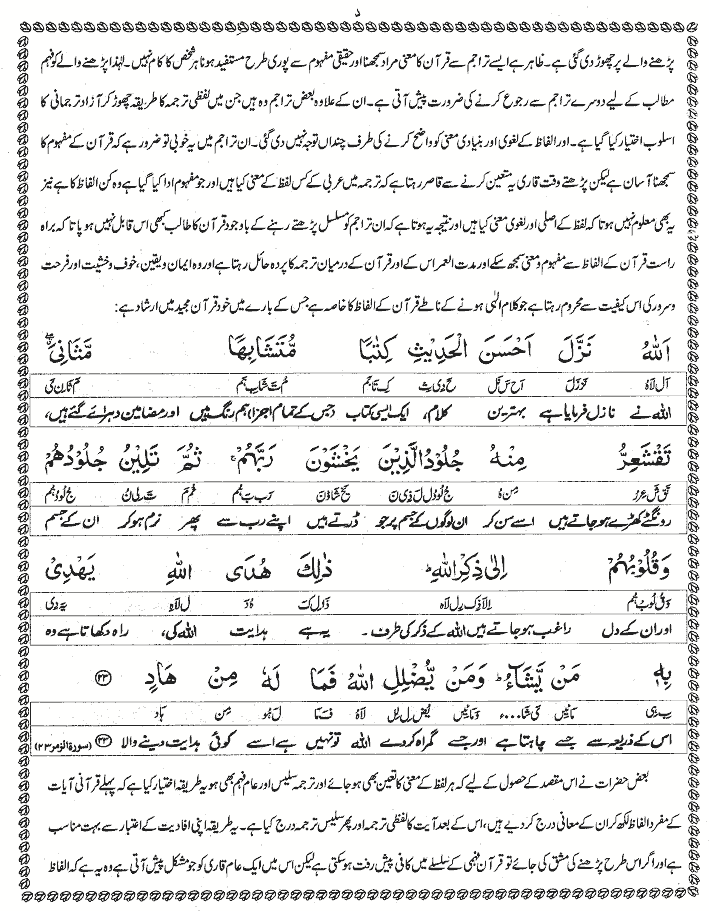 د
پڑھنے والے پر چھوڑ دی گئی ہے۔ ظاہر ہے ایسے تراجم سے قرآن کا معنی مراد سمجھنا اور حقیقی مفہوم سے پوری طرح مستفید ہونا ہر شخص کا کام نہیں۔ لہٰذا پڑھنے والے کو فہم
مطالب کے لیے دوسرے تراجم سے رجوع کرنے کی ضرورت پیش آتی ہے۔ ان کے علاوہ بعض تراجم وہ ہیں جن میں لفظی ترجمہ کا طریقہ چھوڑ کر آزاد ترجمانی کا
اسلوب اختیار کیا گیا ہے۔ اور الفاظ کے لغوی اور بنیادی معنی کو واضح کرنے کی طرف چنداں توجہ نہیں دی گئی۔ ان تراجم میں یہ خوبی تو ضرور ہے کہ قرآن کے مفہوم کا
سمجھنا آسان ہے لیکن پڑھتے وقت قاری یہ متعین کرنے سے قاصر رہتا ہے کہ ترجمہ میں عربی کے کس لفظ کے معنی کیا ہیں اور جو مفہوم ادا کیا گیا ہے وہ کن الفاظ کا ہے نیز
یہ بھی معلوم نہیں ہوتا کہ لفظ کے اصلی اور لغوی معنی کیا ہیں اور نتیجہ یہ ہوتا ہے کہ ان تراجم کو مسلسل پڑھتے رہنے کے باوجود قرآن کا طالب کبھی اس قابل نہیں ہو پاتا کہ براہ
راست قرآن کے الفاظ سے مفہوم و معنی سمجھ سکے اور مدت العمر اس کے اور قرآن کے درمیان ترجمہ کا پردہ حائل رہتا ہے اور وہ ایمان و یقین، خوف و خشیت اور فرحت
و سرور کی اس کیفیت سے محروم رہتا ہے جو کلام الٰہی ہونے کے ناطے قرآن کے الفاظ کا خاصہ ہے جس کے بارے میں خود قرآن مجید میں ارشاد ہے:
اَللّٰهُ نَزَّلَ اَحْسَنَ الْحَدِيْثِ كِتٰبًا مُّتَشَابِهًا مَّثَانِيَ
اَل لَاہُ نَز زَلَ اَح سَ نَل حَ دِی ثِ کِ تَا بَم مُ تَ شَا بِ ہَم مَ ثَا نِ یَ
اللہ نے نازل فرمایا ہے بہترین کلام، ایک ایسی کتاب جس کے تمام اجزا ہم رنگ ہیں اور مضامین دہرائے گئے ہیں،
تَقْشَعِرُّ مِنْهُ جُلُوْدُ الَّذِيْنَ يَخْشَوْنَ رَبَّهُمْ ۚ ثُمَّ تَلِيْنُ جُلُوْدُهُمْ
تَق شَ عِر رُ مِن ہُ جُ لُو دُل لَ ذِی نَ یَخ شَاؤ نَ رَب بَ ہُم ثُم مَ تَ لِی نُ جُ لُو دُ ہُم
رونگٹے کھڑے ہو جاتے ہیں اسے سن کر ان لوگوں کے جسم پر جو ڈرتے ہیں اپنے رب سے پھر نرم ہو کر ان کے جسم
وَقُلُوْبُهُمْ اِلٰى ذِكْرِ اللّٰهِ ۚ ذٰلِكَ هُدَى اللّٰهِ يَهْدِيْ
وَ قُ لُو بُ ہُم اِلَا ذِک رِل لَاہ ذَا لِ کَ ہُ دَ ل لَاہِ یَہ دِی
اور ان کے دل راغب ہو جاتے ہیں اللہ کے ذکر کی طرف۔ یہ ہے ہدایت اللہ کی، راہ دکھاتا ہے وہ
بِهٖ مَنْ يَّشَآءُ ۚ وَمَنْ يُّضْلِلِ اللّٰهُ فَمَا لَهٗ مِنْ هَادٍ ﴿۲۳﴾
بِ ہِی مَائیں یَ شَا ۔۔۔ ءُ وَ مَائیں یُض لِ لِل لَاہُ فَ مَا لَ ہُو مِن ہَاد
اس کے ذریعہ سے جسے چاہتا ہے اور جسے گمراہ کر دے اللہ تو نہیں ہے اسے کوئی ہدایت دینے والا ﴿۲۳﴾ (سورۃ الزمر ۲۳)
بعض حضرات نے اس مقصد کے حصول کے لیے کہ ہر لفظ کے معنی کا تعین بھی ہو جائے اور ترجمہ سلیس اور عام فہم بھی ہو یہ طریقہ اختیار کیا ہے کہ پہلے قرآنی آیات
کے مفرد الفاظ لکھ کر ان کے معانی درج کر دیے ہیں، اس کے بعد آیت کا لفظی ترجمہ اور پھر سلیس ترجمہ درج کیا ہے۔ یہ طریقہ اپنی افادیت کے اعتبار سے بہت مناسب
ہے اور اگر اس طرح پڑھنے کی مشق کی جائے تو قرآن فہمی کے سلسلے میں کافی پیش رفت ہو سکتی ہے لیکن اس میں ایک عام قاری کو جو مشکل پیش آتی ہے وہ یہ ہے کہ الفاظ